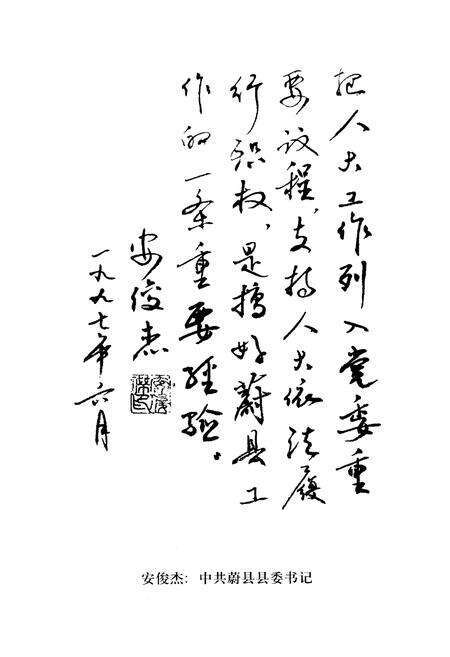 把人大工作列入党委重
要议程，支持人大依法履
行职权，是搞好蔚县工
作的一条重要经验。
安俊杰
一九九七年六月
安俊杰：中共蔚县县委书记